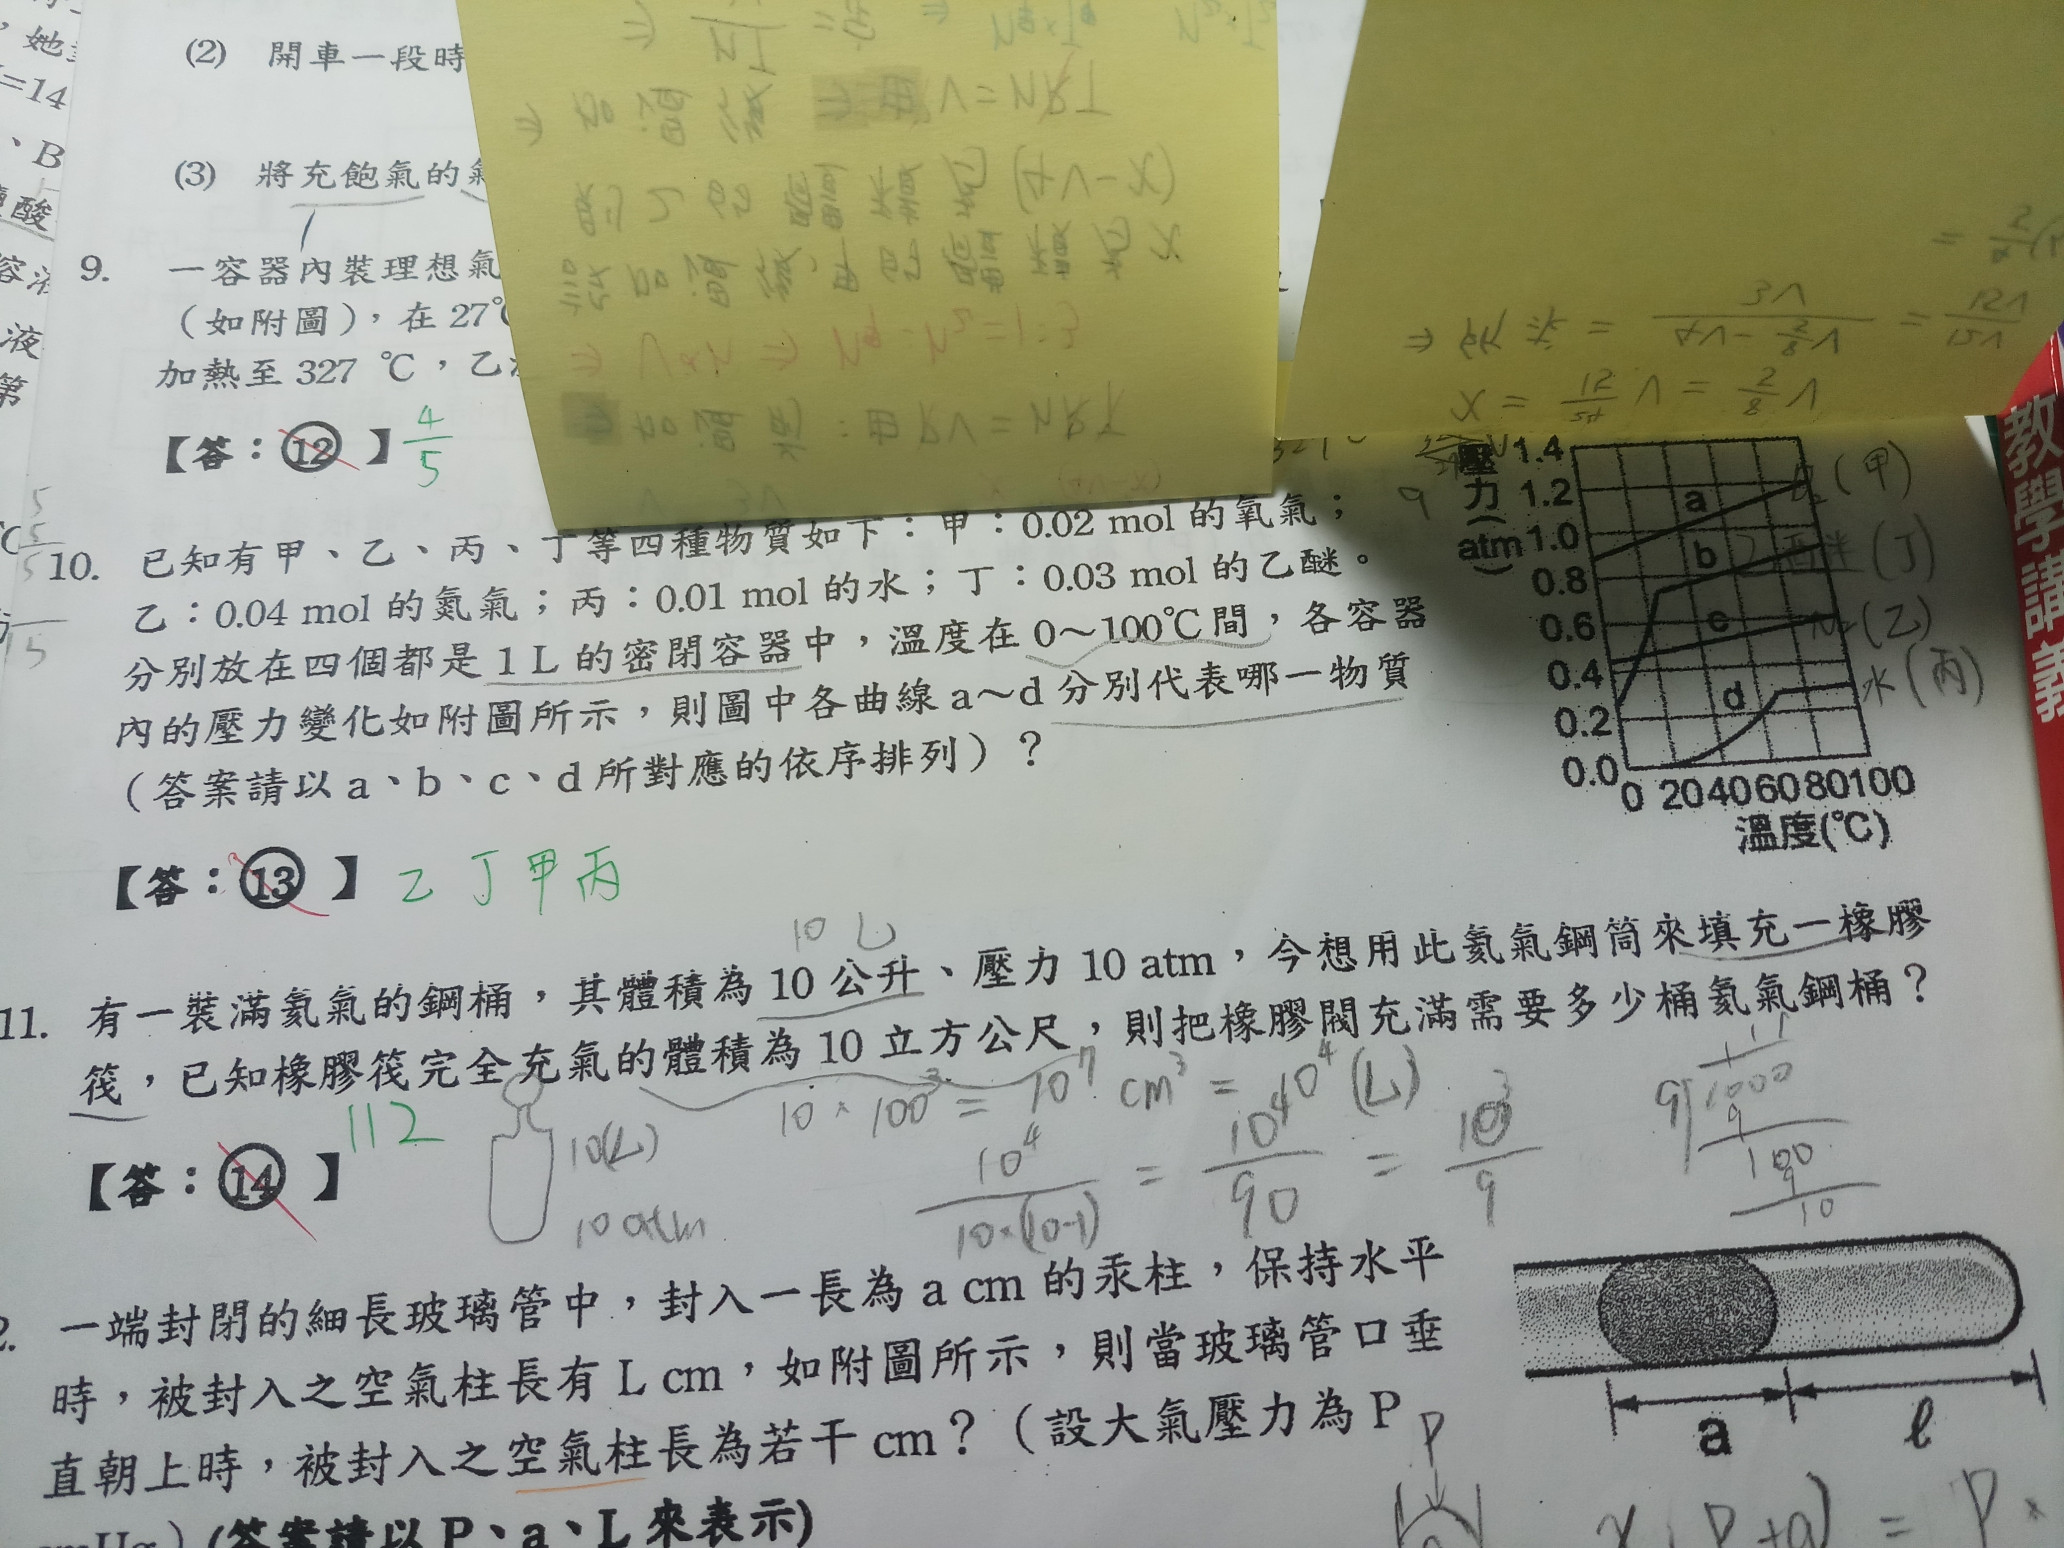 (2) 開車一段時
(3) 將充飽氣的
9. 一容器內裝理想氣
（如附圖），在 27℃
加熱至 327 ℃，乙
【答：⑫】 4/5
10. 已知有甲、乙、丙、丁等四種物質如下：甲：0.02 mol 的氧氣；
乙：0.04 mol 的氮氣；丙：0.01 mol 的水；丁：0.03 mol 的乙醚。
分別放在四個都是 1 L 的密閉容器中，溫度在 0～100℃間，各容器
內的壓力變化如附圖所示，則圖中各曲線 a～d 分別代表哪一物質
（答案請以 a、b、c、d 所對應的依序排列）？
【答：⑬】 乙丁甲丙
壓力(atm)
1.4
1.2
1.0
0.8
0.6
0.4
0.2
0.0
0 20 40 60 80 100
溫度(℃)
a
b
c
d
(甲)
(丁)
N₂(乙)
水(丙)
10 L
11. 有一裝滿氦氣的鋼桶，其體積為 10 公升、壓力 10 atm，今想用此氦氣鋼筒來填充一橡膠
筏，已知橡膠筏完全充氣的體積為 10 立方公尺，則把橡膠閥充滿需要多少桶氦氣鋼桶？
【答：⑭】 112
10(L)
10 atm
10 × 100³ = 10⁷ cm³ = 10⁴ (L)
10⁴/10×(10-1) = 10⁴/90 = 10³/9
111
9 1000
9
100
9
10
2. 一端封閉的細長玻璃管中，封入一長為 a cm 的汞柱，保持水平
時，被封入之空氣柱長有 L cm，如附圖所示，則當玻璃管口垂
直朝上時，被封入之空氣柱長為若干 cm？（設大氣壓力為 P
cmHg）(答案請以 P、a、L 來表示)
a
ℓ
P
x·(P+a) = P ×
教學講義
V = NRT
(4V-X)
X
= 1:3
: 由 PV = NRT
X = 12/ V = V